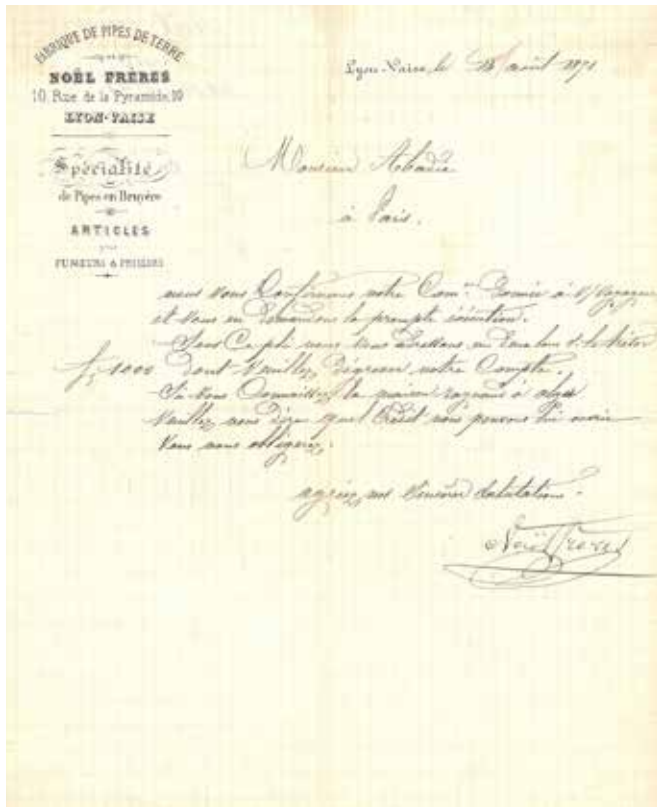 FABRIQUE DE PIPES DE TERRE
NOËL FRÈRES
10, Rue de la Pyramide, 10
LYON-VAISE
Spécialité
de Pipes en Bruyère
ARTICLES
POUR
FUMEURS & PRISEURS
Lyon-Vaise, le août 187
Monsieur Abadie
à Paris.
nous vous Confirmons notre Com.on Donnée à V/ Voyageur
et vous en Demandons la prompte exécution.
Sous Ce pli nous vous adressons
f. 1000 Dont Veuillez Dégrever notre Compte.
Si vous Connaissez la maison à
Veuillez nous Dire quel Crédit nous pouvons lui ouvrir
Vous nous obligerez.
agréez nos Sincères Salutations.
Noël Frères